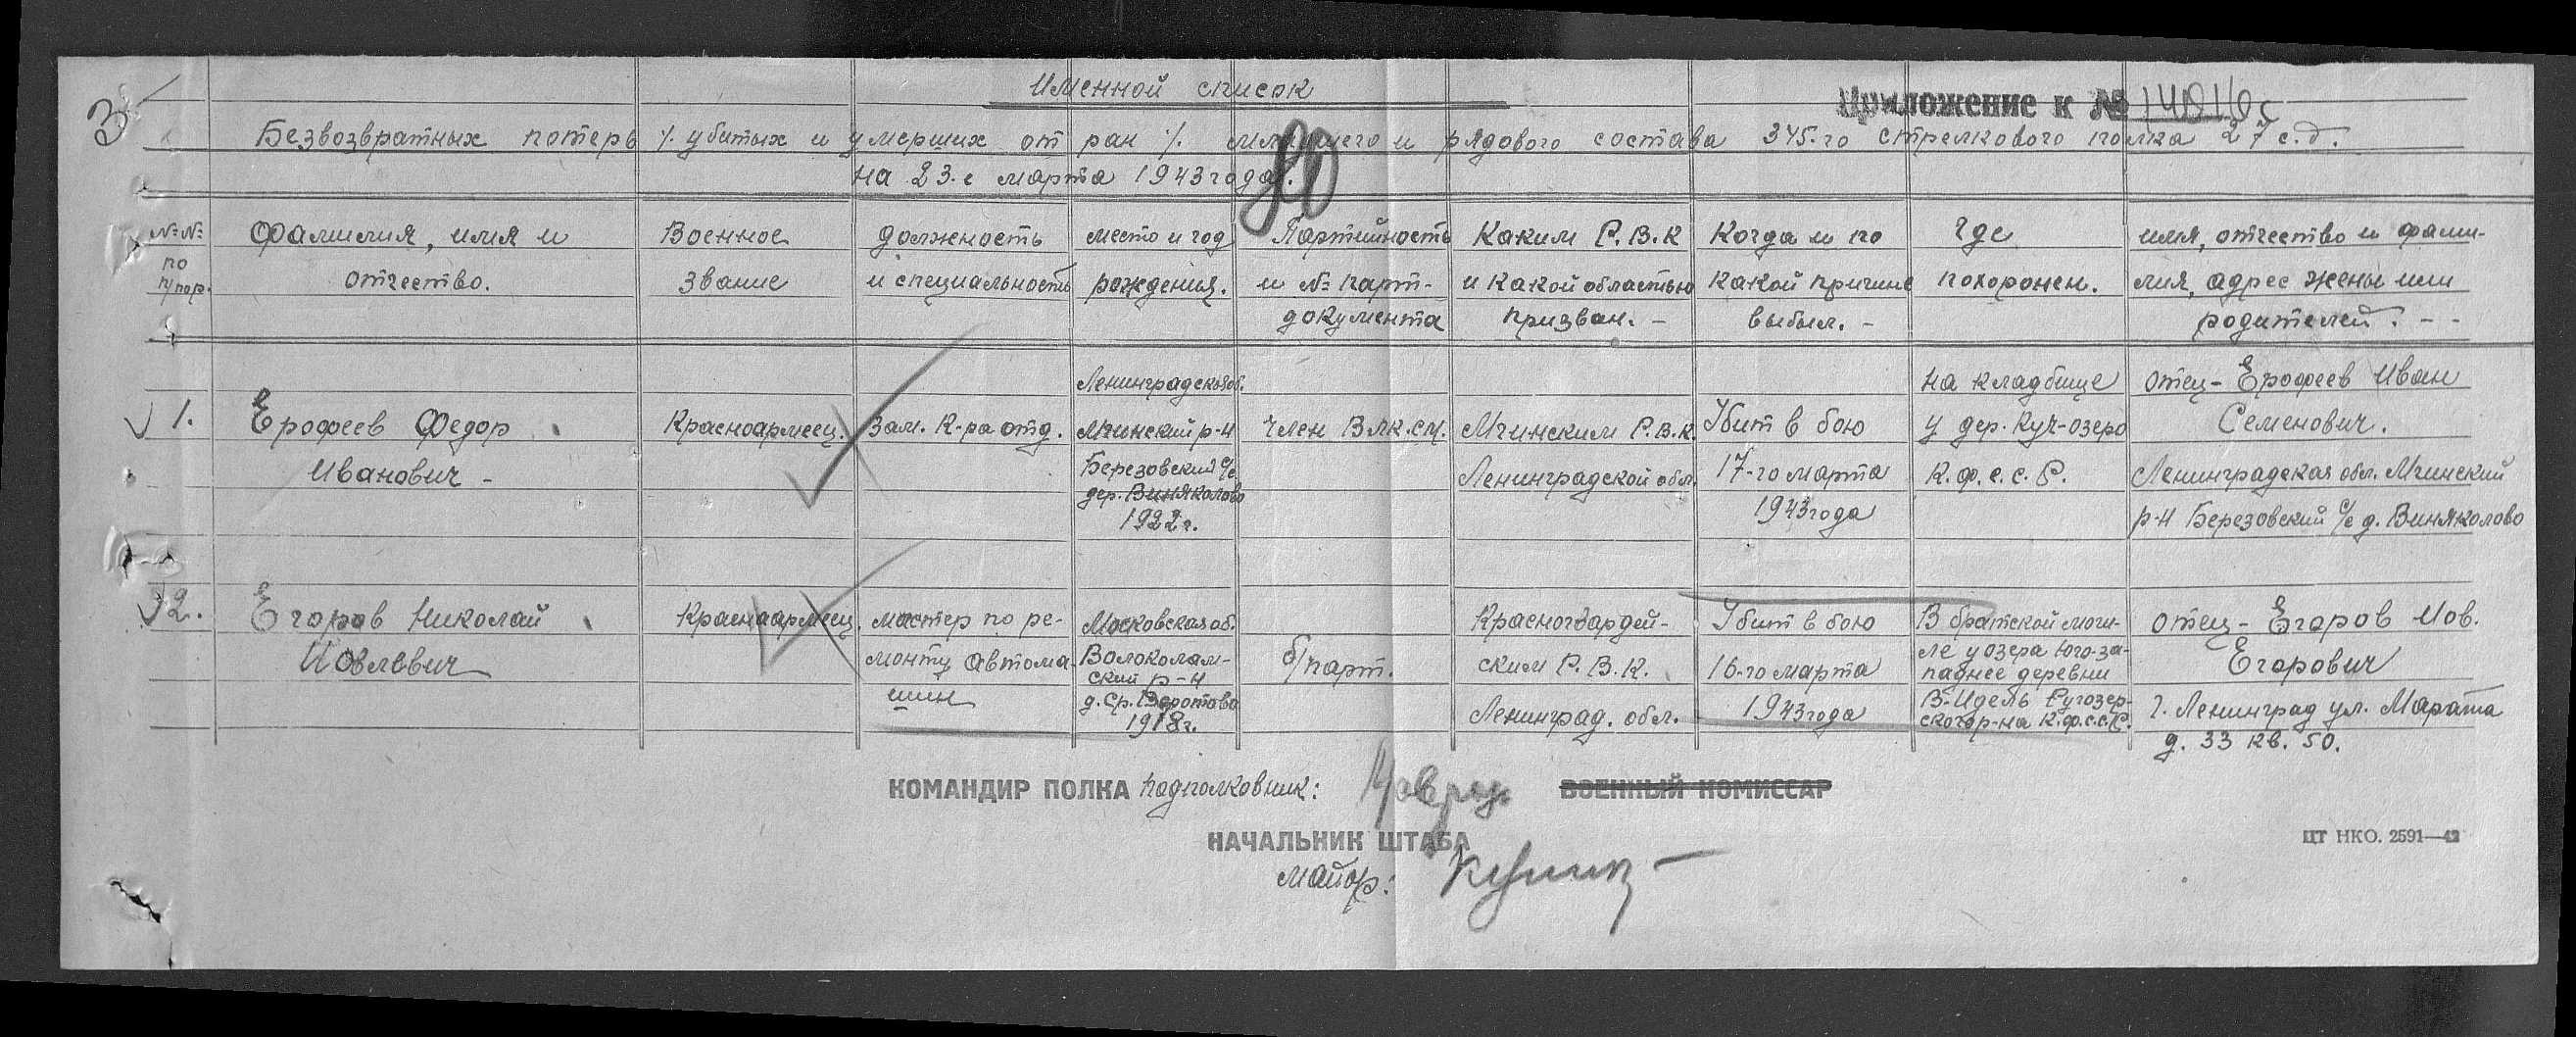 3
Именной список
Приложение к № 14016с
Безвозвратных потерь /. убитых и умерших от ран /. младшего и рядового состава 345-го стрелкового полка 27 с.д.
на 23-е марта 1943 года.
80
№№ по п/пор.
Фамилия, имя и отчество.
Военное звание
Должность и специальность
место и год рождения.
Партийность и № парт-документа
Каким Р.В.К и какой областью призван. -
Когда и по какой причине выбыл. -
Где похоронен.
имя, отчество и фами-
лия, адрес жены или
родителей. - -
1.
Ерофеев Федор
Иванович -
Красноармеец.
Зам. К-ра отд.
Ленинградская об.
Мгинский р-н
Березовский с/с
дер. Виняколово
1922 г.
член ВЛК.СМ.
Мгинским Р.В.К.
Ленинградской обл.
Убит в бою
17-го марта
1943 года
на кладбище
у дер. Куч-озеро
К.Ф.С.С.Р.
отец - Ерофеев Иван
Семенович.
Ленинградская обл. Мгинский
р-н Березовский с/с д. Виняколово
2.
Егоров Николай
Иовлевич
Красноармеец.
мастер по ре-
монту автома-
шин
Московская об.
Волоколам-
ский р-н
д. Ср.
1918 г.
б/парт.
Красногвардей-
ским Р.В.К.
Ленинград. обл.
Убит в бою
16-го марта
1943 года
В братской моги-
ле у озера юго-за-
паднее деревни
В-Идель Ругозер-
ского р-на К.Ф.С.С.Р.
отец - Егоров Иов.
Егорович
г. Ленинград ул. Марата
д. 33 кв. 50.
КОМАНДИР ПОЛКА подполковник:
ВОЕННЫЙ КОМИССАР
НАЧАЛЬНИК ШТАБА
майор:
ЦТ НКО. 2591—42